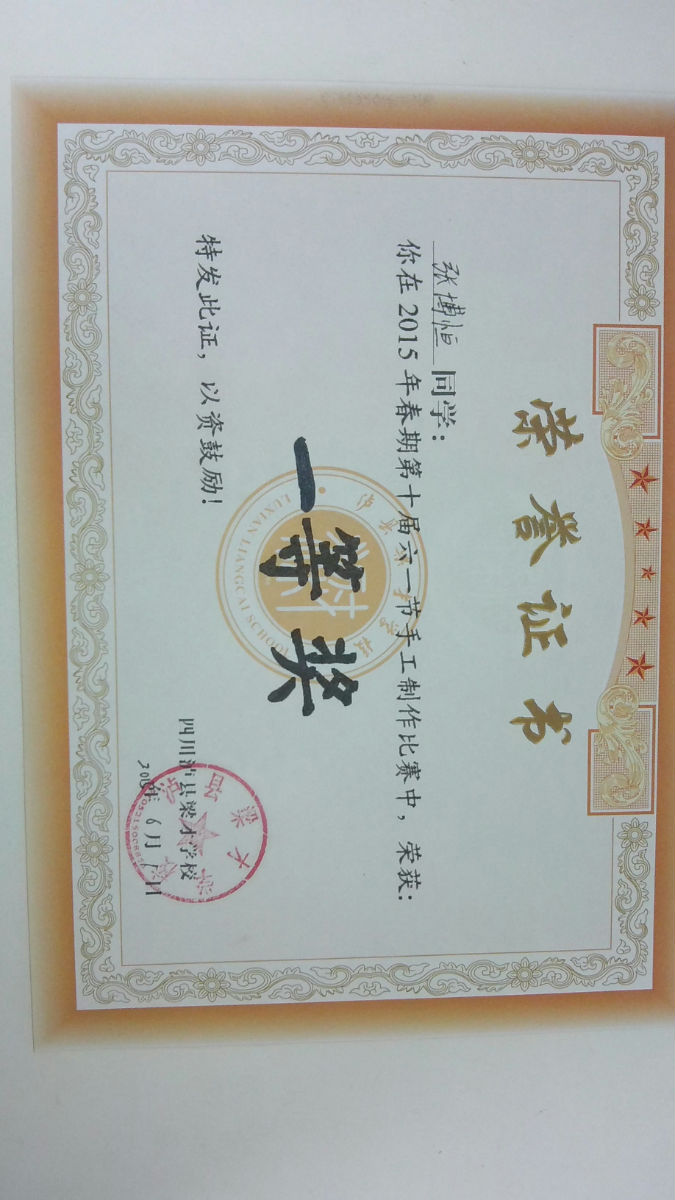 荣誉证书
张博恒 同学：
你在 2015 年春期第十届六一节手工制作比赛中，荣获：
一等奖
特发此证，以资鼓励！
LUXIAN LIANGCAI SCHOOL
四川泸县梁才学校
6月1日